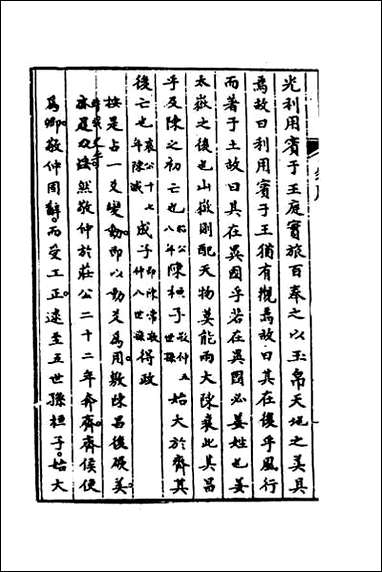 光利用賓于王庭實旅百奉之以玉帛天地之美具
焉故曰利用賓于王猶有觀焉故曰其在後乎風行
而著于土故曰其在異國乎若在異國必姜姓也姜
太嶽之後也山嶽則配天物莫能兩大陳衰此其昌
乎及陳之初亡也昭公八年陳桓子敬仲五世孫始大於齊其
後亡也哀公十七年陳滅成子即陳常敬仲八世孫得政
按是占一爻變動即以動爻爲用敷陳昌後
然敬仲於莊公二十二年奔齊。齊侯使
爲卿。敬仲固辭。而受工正。逮至五世孫桓子。始大